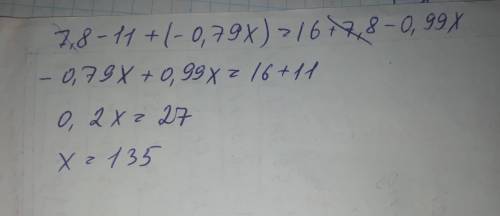 7,8 - 11 + (- 0,79x) = 16 + 7,8 - 0,99x
- 0,79x + 0,99x = 16 + 11
0, 2x = 27
x = 135